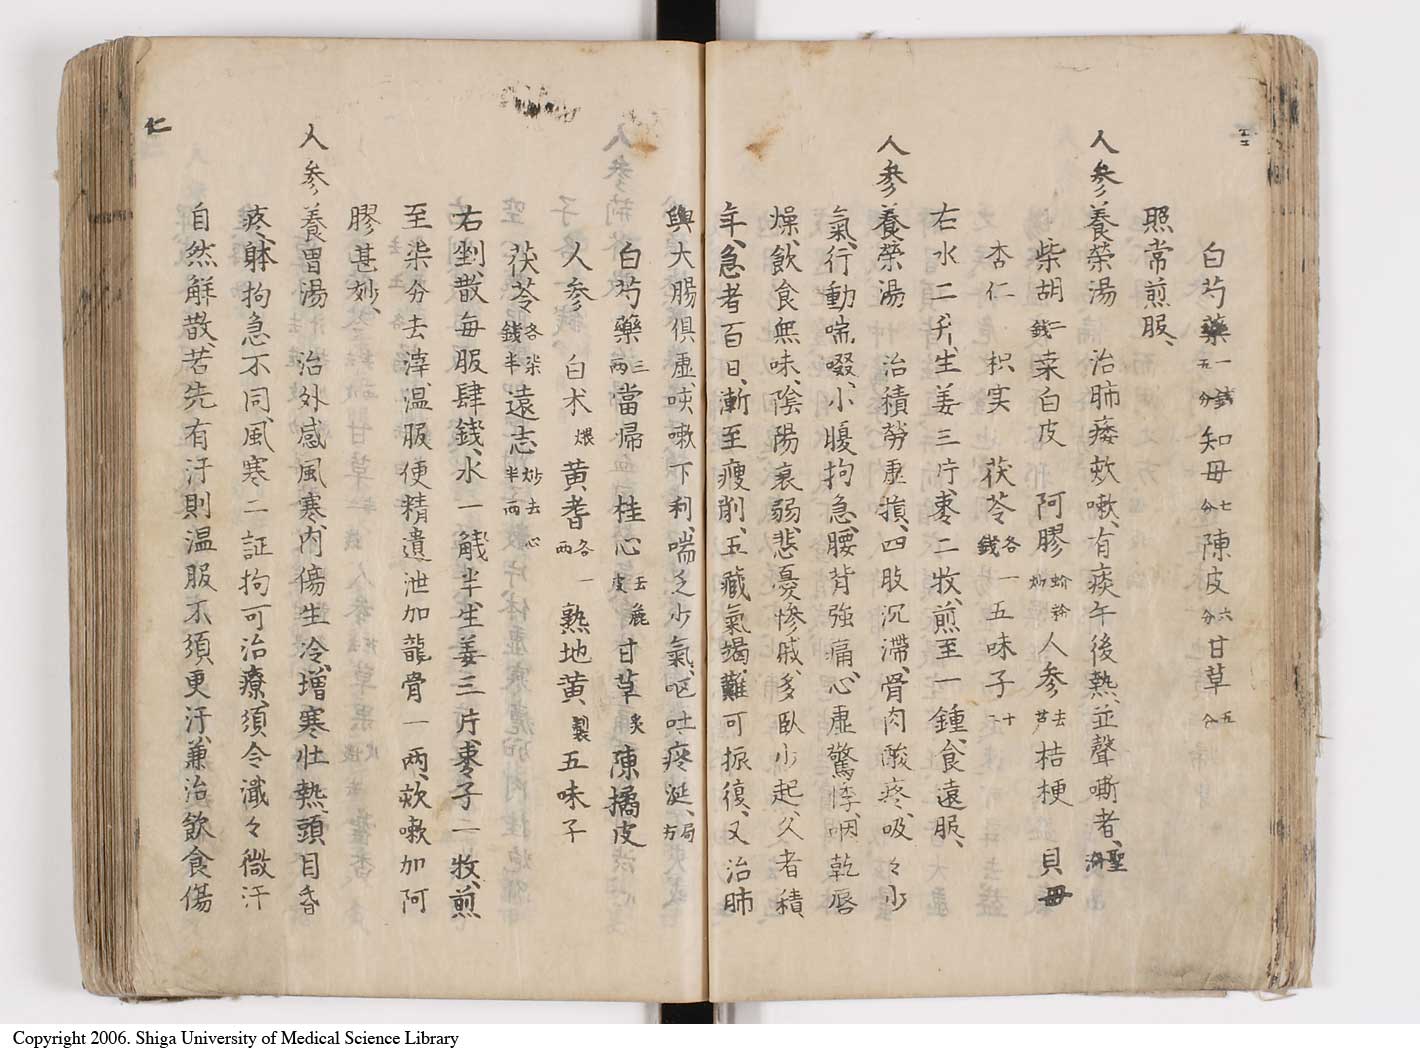 白芍藥一錢五分知母七分陳皮六分甘草五分
照常煎服、
人參養榮湯　治肺痿欬嗽、有痰午後熱、並聲嘶者、聖濟
柴胡二錢桒白皮　阿膠蚧粉炒人參去芦桔梗　貝母
杏仁　枳実　茯苓各一錢五味子十
右水二升、生姜三片、棗二牧、煎至一鍾、食遠服、
人參養榮湯　治積勞虛損、四肢沉滯、骨肉酸疼、吸々少
氣、行動喘啜、小腹拘急、腰背強痛、心虛驚悸、咽乾唇
燥、飲食無味、陰陽衰弱、悲憂慘戚、多臥少起、久者積
年、急者百日、漸至瘦削、五臟氣竭、難可振復、又治肺
與大腸俱虛、咳嗽下利、喘乏少氣、嘔吐疼涎、局方
白芍藥三兩當帰　桂心去麁皮甘草炙陳橘皮
人參　白术煨黄耆各一兩　熟地黄製五味子
茯苓各柒錢半遠志炒去心半兩
右剉散每服肆錢、水一觥半、生姜三片、棗子二牧、煎
至柒分去滓、温服便精遺泄加龍骨一兩、欬嗽加阿
膠甚妙、
人參養胃湯　治外感風寒、內傷生冷、增寒壮熱、頭目昏
疼、躰拘急不同、風寒二証拘可治療、須令濈々微汗
自然觧散、若先有汙則温服不須更汙、兼治飲食傷
七